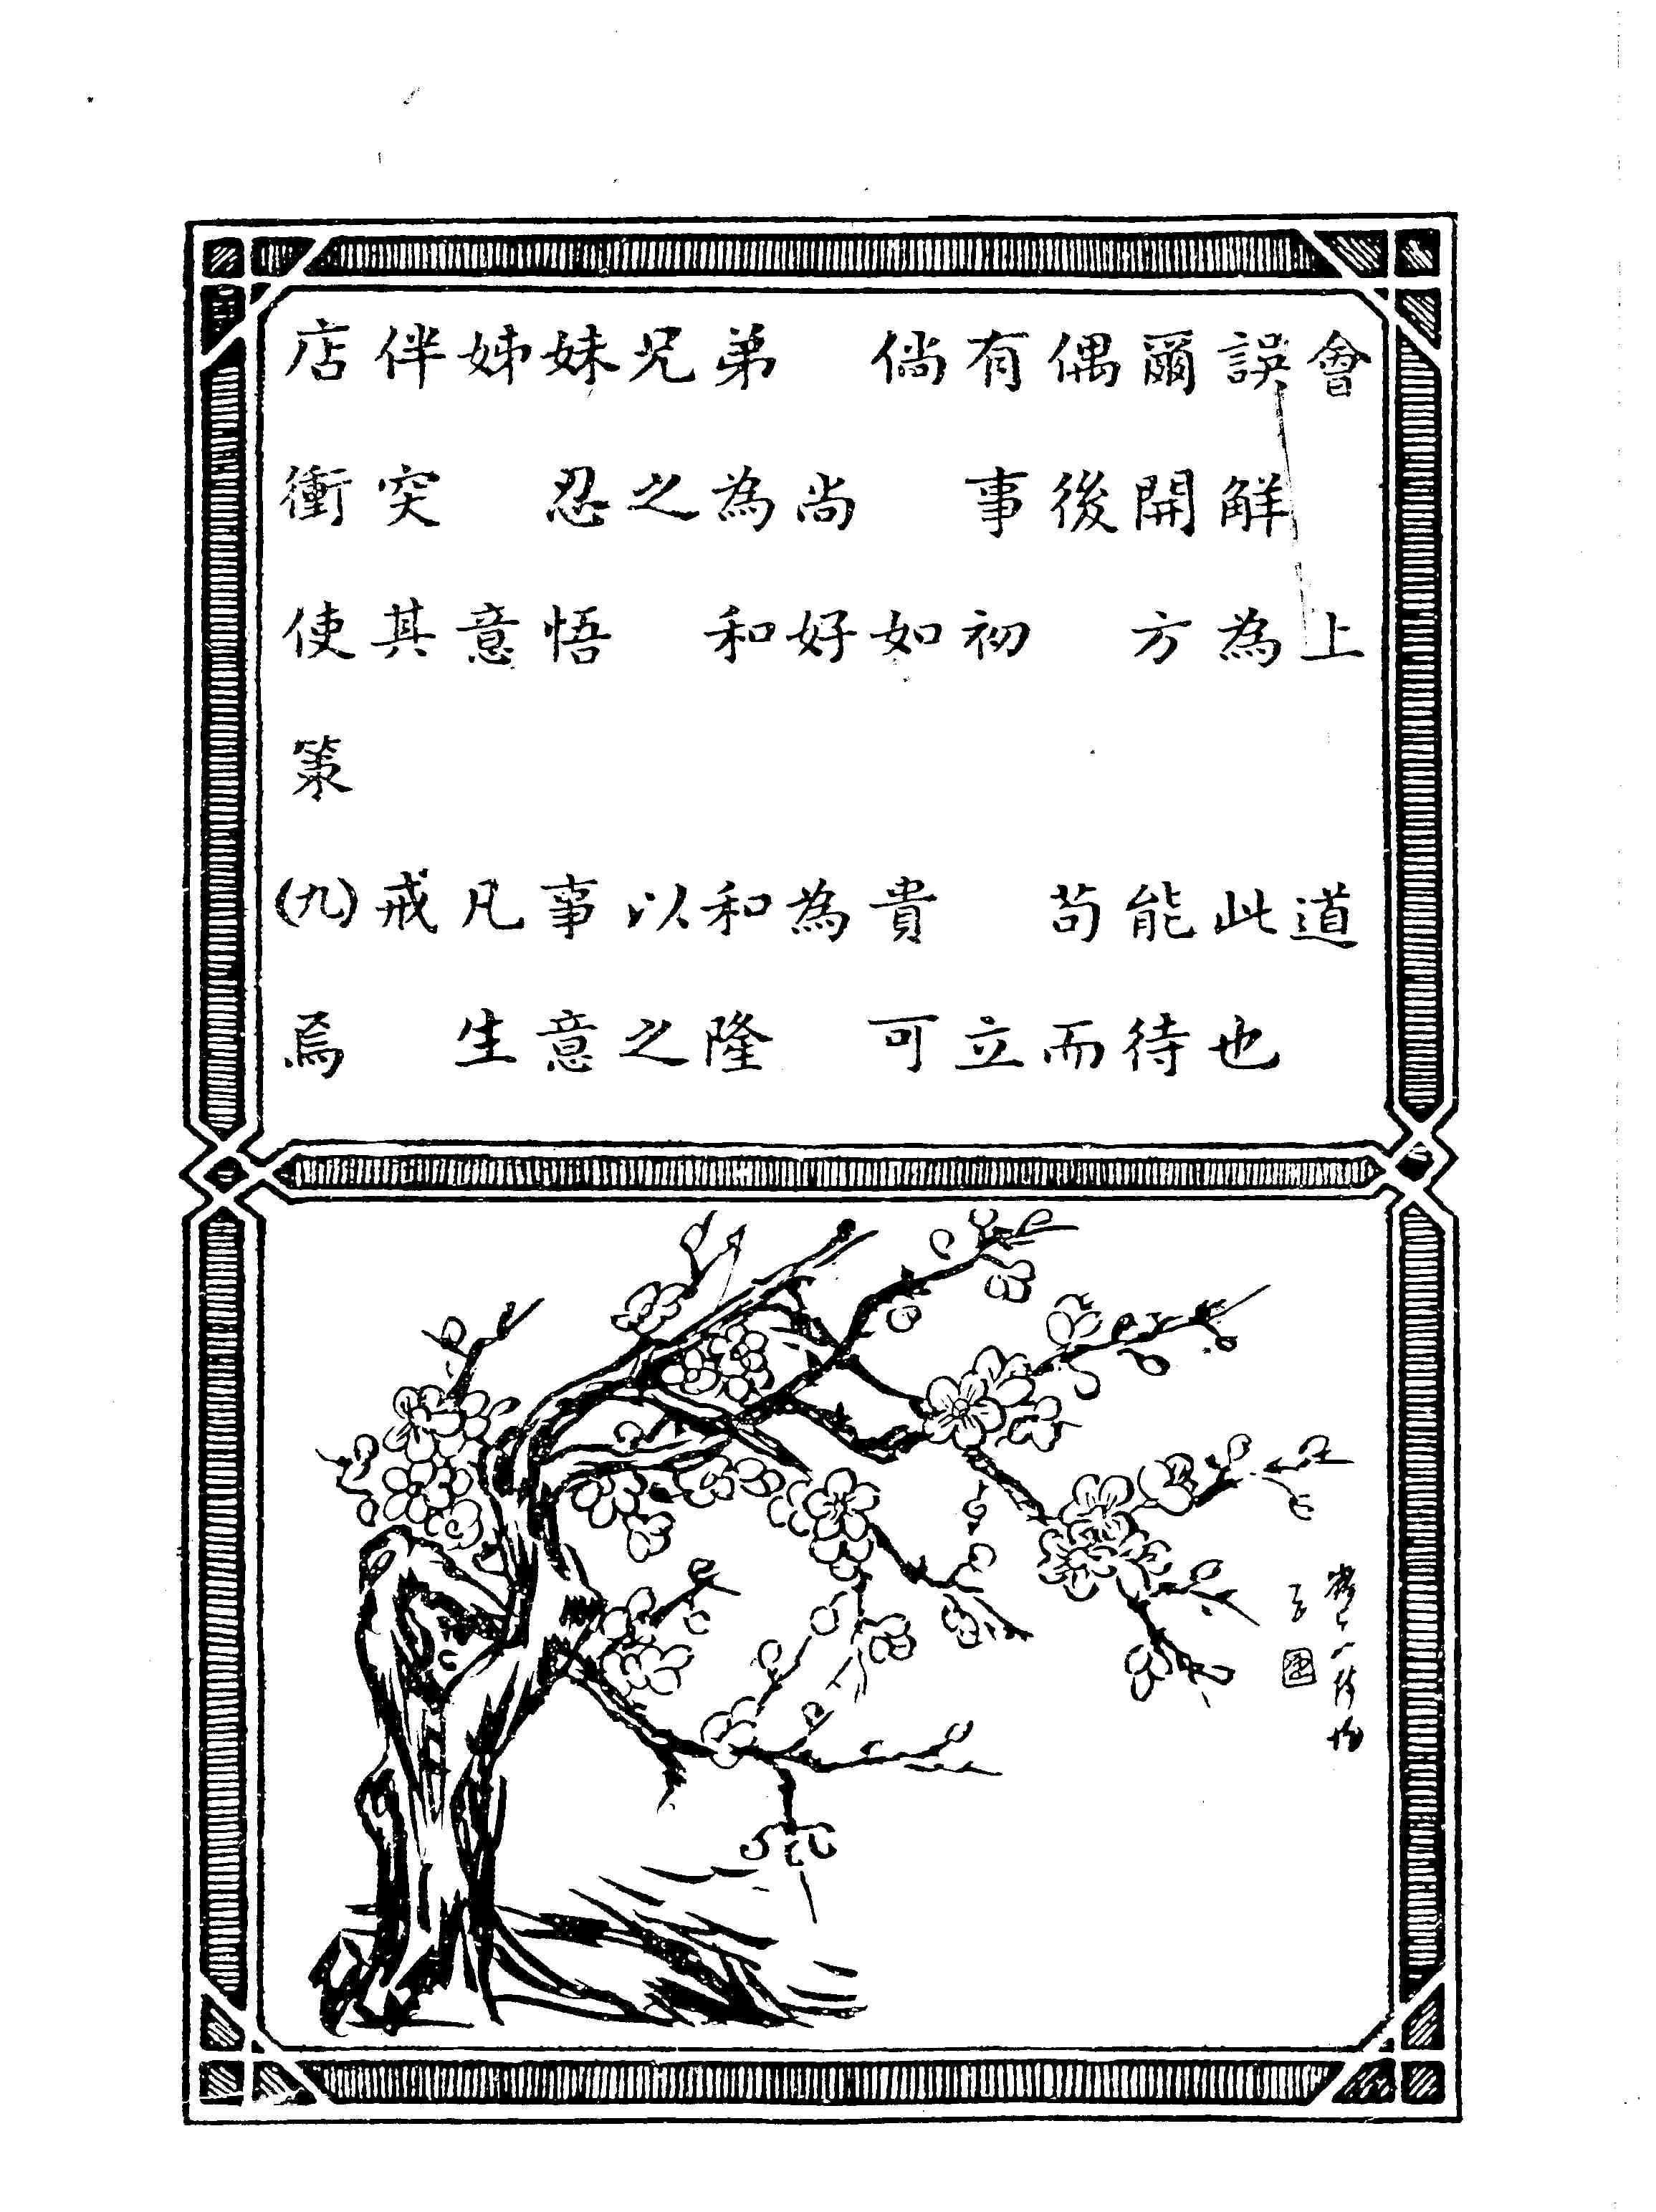 店伴姊妹兄弟　倘有偶爾誤會
衝突　忍之為尚　事後開解
使其意悟　和好如初　方為上
策
(九)戒凡事以和為貴　苟能此道
焉　生意之隆　可立而待也